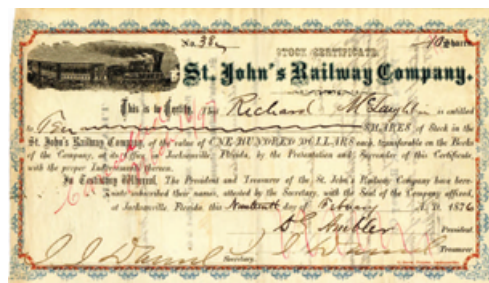 No. 38 10 Shares
STOCK CERTIFICATE
St. John's Railway Company.
This is to Certify, That Richard McLaughlin is entitled
to Ten SHARES of Stock in the
St. John's Railway Company, of the value of ONE HUNDRED DOLLARS each, transferable on the Books
of the Company, at its Office in Jacksonville, Florida, by the Presentation and Surrender of this Certificate,
with the proper Indorsement thereon.
In Testimony Whereof, The President and Treasurer of the St. John's Railway Company have here-
unto subscribed their names, attested by the Secretary, with the Seal of the Company affixed,
at Jacksonville, Florida this Nineteenth day of Febuary A. D. 1876
D G Ambler President.
J J Daniel Secretary. J J Daniel Treasurer.